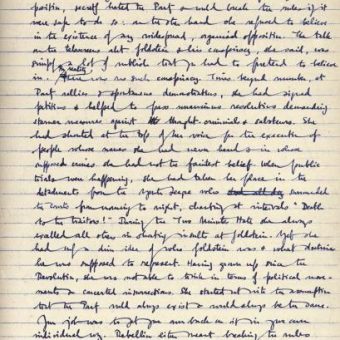 position, secretly hated the Party & would break the rules if it
were safe to do so. On the other hand she refused to believe
in the existence of any widespread, organised opposition. The talk
on the telescreen abt Goldstein & his conspiracy, she said, was
simply a lot of rubbish that you had to pretend to believe
in. there was no such conspiracy. Times beyond number, at
Party rallies & spontaneous demonstrations, she had signed
petitions & helped to pass unanimous resolutions demanding
sterner measures against thought-criminals & saboteurs. She
had shouted at the top of her voice for the execution of
people whose names she had never heard & in whose
supposed crimes she had not the faintest belief. When public
trials were happening, she had taken her place in the
detachments from the Youth League who surrounded
the courts from morning to night, chanting at intervals "Death
to the traitors!" During the Two Minute Hate she always
excelled all others in shouting insults at Goldstein. Yet she
had only a dim idea of who Goldstein was & what doctrines
he was supposed to represent. Having grown up since the
Revolution, she was not able to think in terms of political move-
ments & concerted insurrections. She started out with the assumption
that the Party would always exist & would always be the same.
Your job was to get your own back on it in your own
individual way. Rebellion either meant breaking the rules